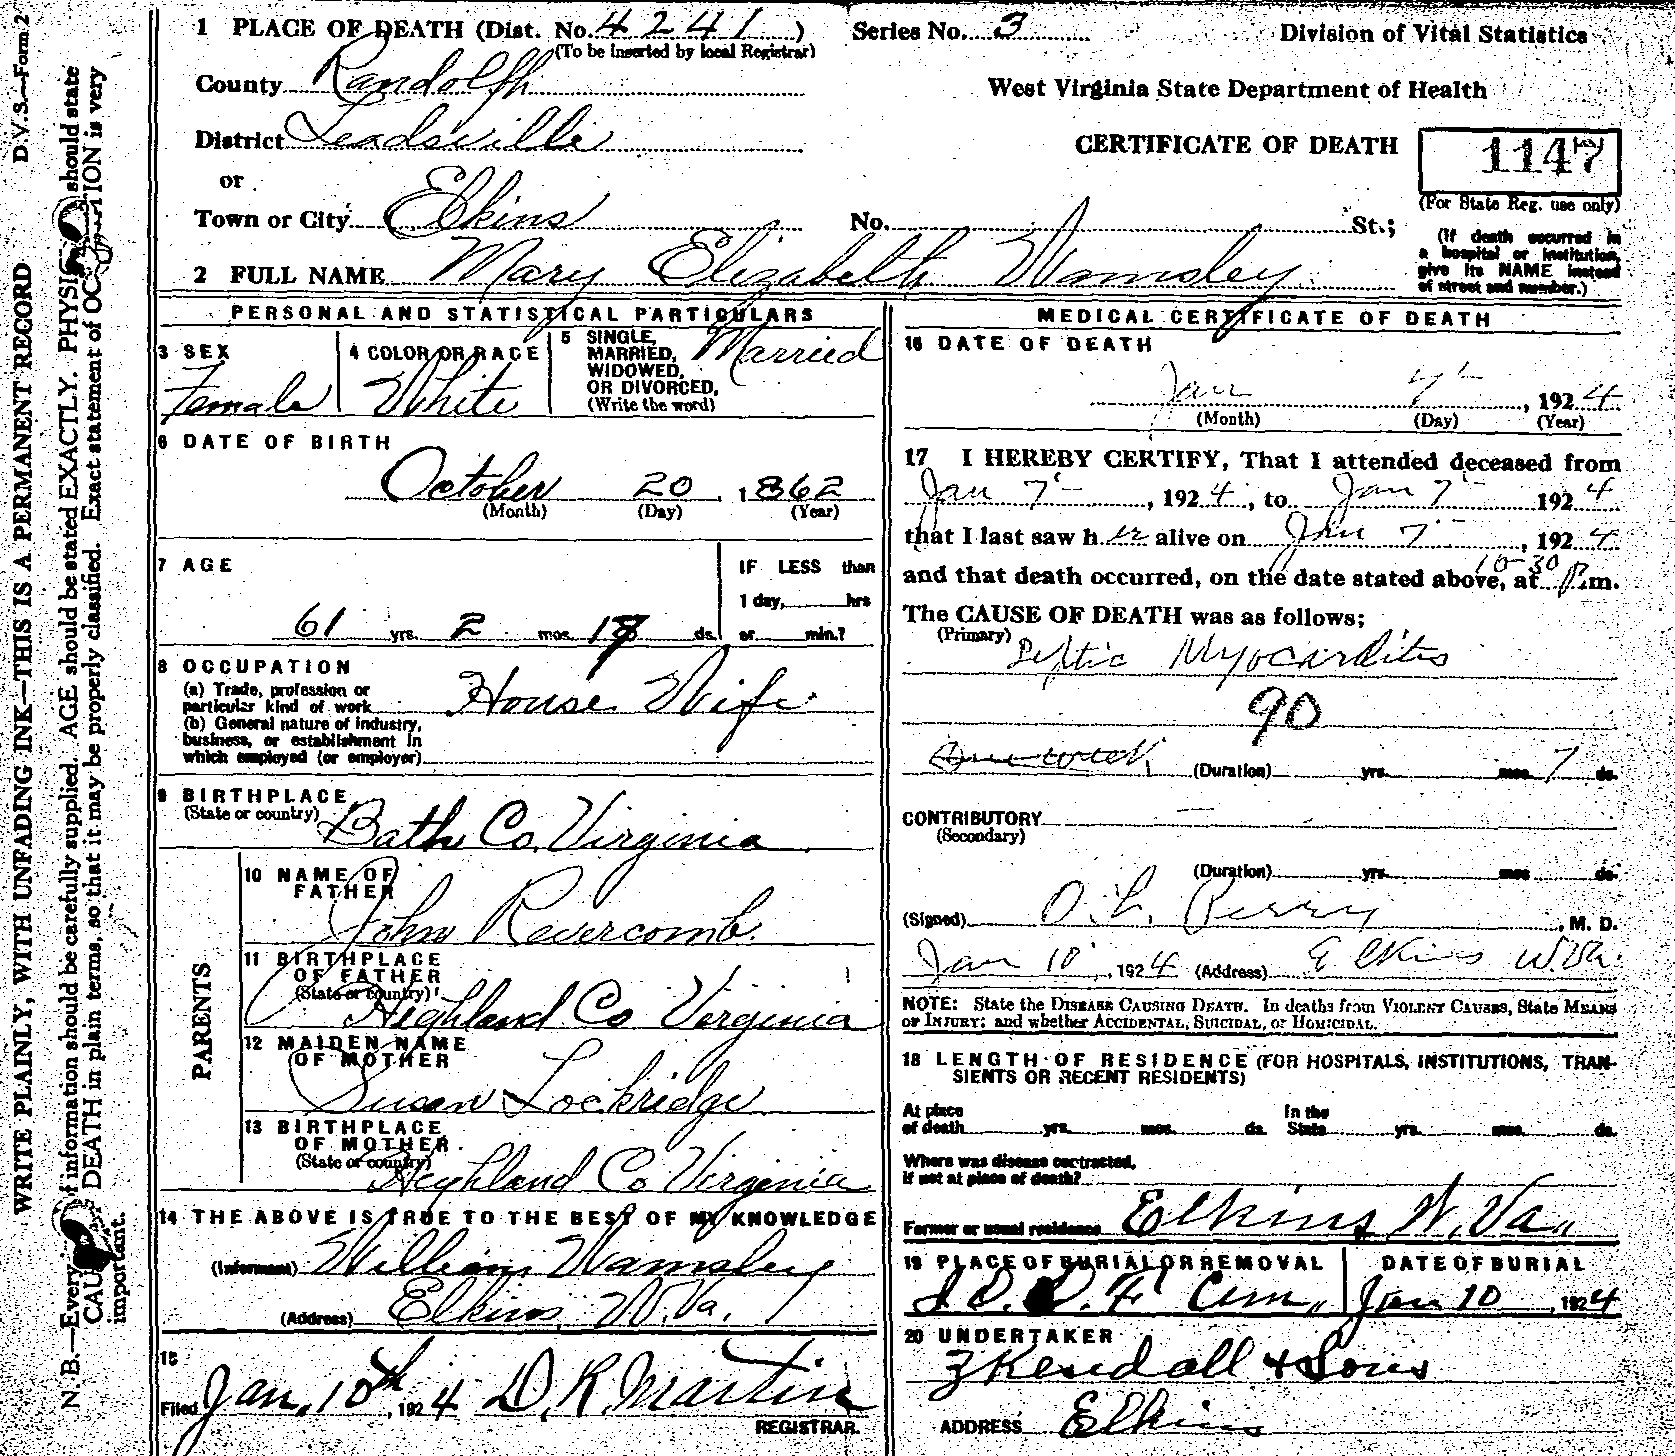 D.V.S.—Form 2
WRITE PLAINLY, WITH UNFADING INK—THIS IS A PERMANENT RECORD
N. B.—Every of information should be carefully supplied. AGE should be stated EXACTLY. PHYSIC should state
CAU DEATH in plain terms, so that it may be properly classified. Exact statement of OC TION is very
important.
1 PLACE OF DEATH (Dist. No. 4241)
(To be inserted by local Registrar)
Series No. 3
Division of Vital Statistics
County Randolph
West Virginia State Department of Health
District Leadsville
CERTIFICATE OF DEATH
1147
(For State Reg. use only)
or
Town or City Elkins
No. St.;
(If death occurred in
a hospital or institution,
give its NAME instead
of street and number.)
2 FULL NAME Mary Elizabeth Wamsley
PERSONAL AND STATISTICAL PARTICULARS
3 SEX
Female
4 COLOR OR RACE
White
5 SINGLE,
MARRIED,
WIDOWED,
OR DIVORCED,
(Write the word)
Married
6 DATE OF BIRTH
October 20, 1862
(Month) (Day) (Year)
7 AGE
61 yrs. 2 mos. ds.
IF LESS than
1 day, hrs
or min.?
8 OCCUPATION
(a) Trade, profession or
particular kind of work House Wife
(b) General nature of industry,
business, or establishment in
which employed (or employer)
9 BIRTHPLACE
(State or country) Bath Co. Virginia
PARENTS
10 NAME OF
FATHER
John Revercomb
11 BIRTHPLACE
OF FATHER
(State or country)
Highland Co Virginia
12 MAIDEN NAME
OF MOTHER
Susan Lockridge
13 BIRTHPLACE
OF MOTHER
(State or country)
Highland Co Virginia
14 THE ABOVE IS TRUE TO THE BEST OF MY KNOWLEDGE
(Informant) William Wamsley
(Address) Elkins, W.Va.
15
Filed Jan. 10th, 1924 D.R. Martin
REGISTRAR.
MEDICAL CERTIFICATE OF DEATH
16 DATE OF DEATH
Jan , 1924
(Month) (Day) (Year)
17 I HEREBY CERTIFY, That I attended deceased from
Jan 7, 1924, to Jan 7 1924
that I last saw her alive on Jan 7, 1924
and that death occurred, on the date stated above, at 10-30 P.m.
The CAUSE OF DEATH was as follows;
(Primary) Septic Myocarditis
90
(Duration) yrs. mos. 7 ds.
CONTRIBUTORY —
(Secondary)
(Duration) yrs. mos. ds.
(Signed) O.L. Perry, M. D.
Jan 10, 1924 (Address) Elkins W.Va.
NOTE: State the DISEASE CAUSING DEATH. In deaths from VIOLENT CAUSES, State MEANS
OF INJURY; and whether ACCIDENTAL, SUICIDAL, or HOMICIDAL.
18 LENGTH OF RESIDENCE (FOR HOSPITALS, INSTITUTIONS, TRAN-
SIENTS OR RECENT RESIDENTS)
At place
of death yrs. mos. ds.
In the
State yrs. mos. ds.
Where was disease contracted,
if not at place of death?
Former or usual residence Elkins W. Va.
19 PLACE OF BURIAL OR REMOVAL
I.O.O.F. Cem.
DATE OF BURIAL
Jan 10, 1924
20 UNDERTAKER
Kendall & Sons
ADDRESS Elkins